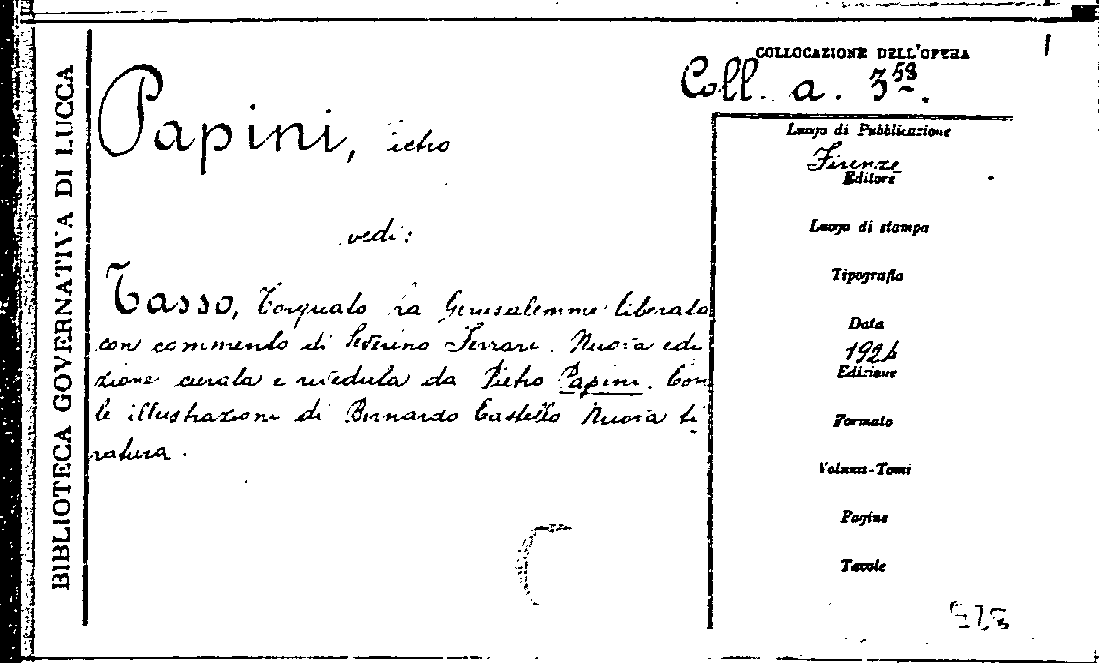 BIBLIOTECA GOVERNATIVA DI LUCCA
Papini, ietro
vedi:
Tasso, Torquato La Gerusalemme liberata
con commento di Severino Ferrari. Nuova edi
zione curata e riveduta da Pietro Papini. Con
le illustrazioni di Bernardo Castello Nuova ti
ratura.
COLLOCAZIONE DELL'OPERA
Coll. a. 3
Luogo di Pubblicazione
Firenze
Editore
Luogo di stampa
Tipografia
Data
Edizione
Formato
Volume-Tomi
Pagine
Tavole